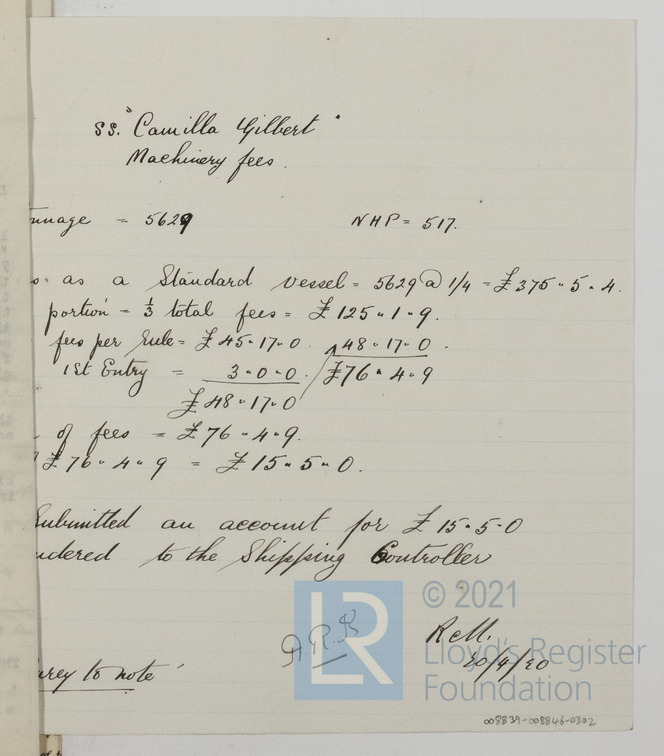 SS. "Camilla Gilbert"
Machinery fees.
nnage = 5629 NHP = 517.
s. as a Standard vessel = 5629 @ 1/4 = £375-5-4.
portion = 1/3 total fees = £125-1-9.
fees per Rule = £45-17-0 48-17-0.
1st Entry = 3-0-0. £76-4-9
£48-17-0
of fees = £76-4-9.
£76-4-9 = £15-5-0.
Submitted an account for £15-5-0
ndered to the Shipping Controller
A.R.K
© 2021
LR
Lloyd's Register
Foundation
20/4/20
to note
008839-008846-0302